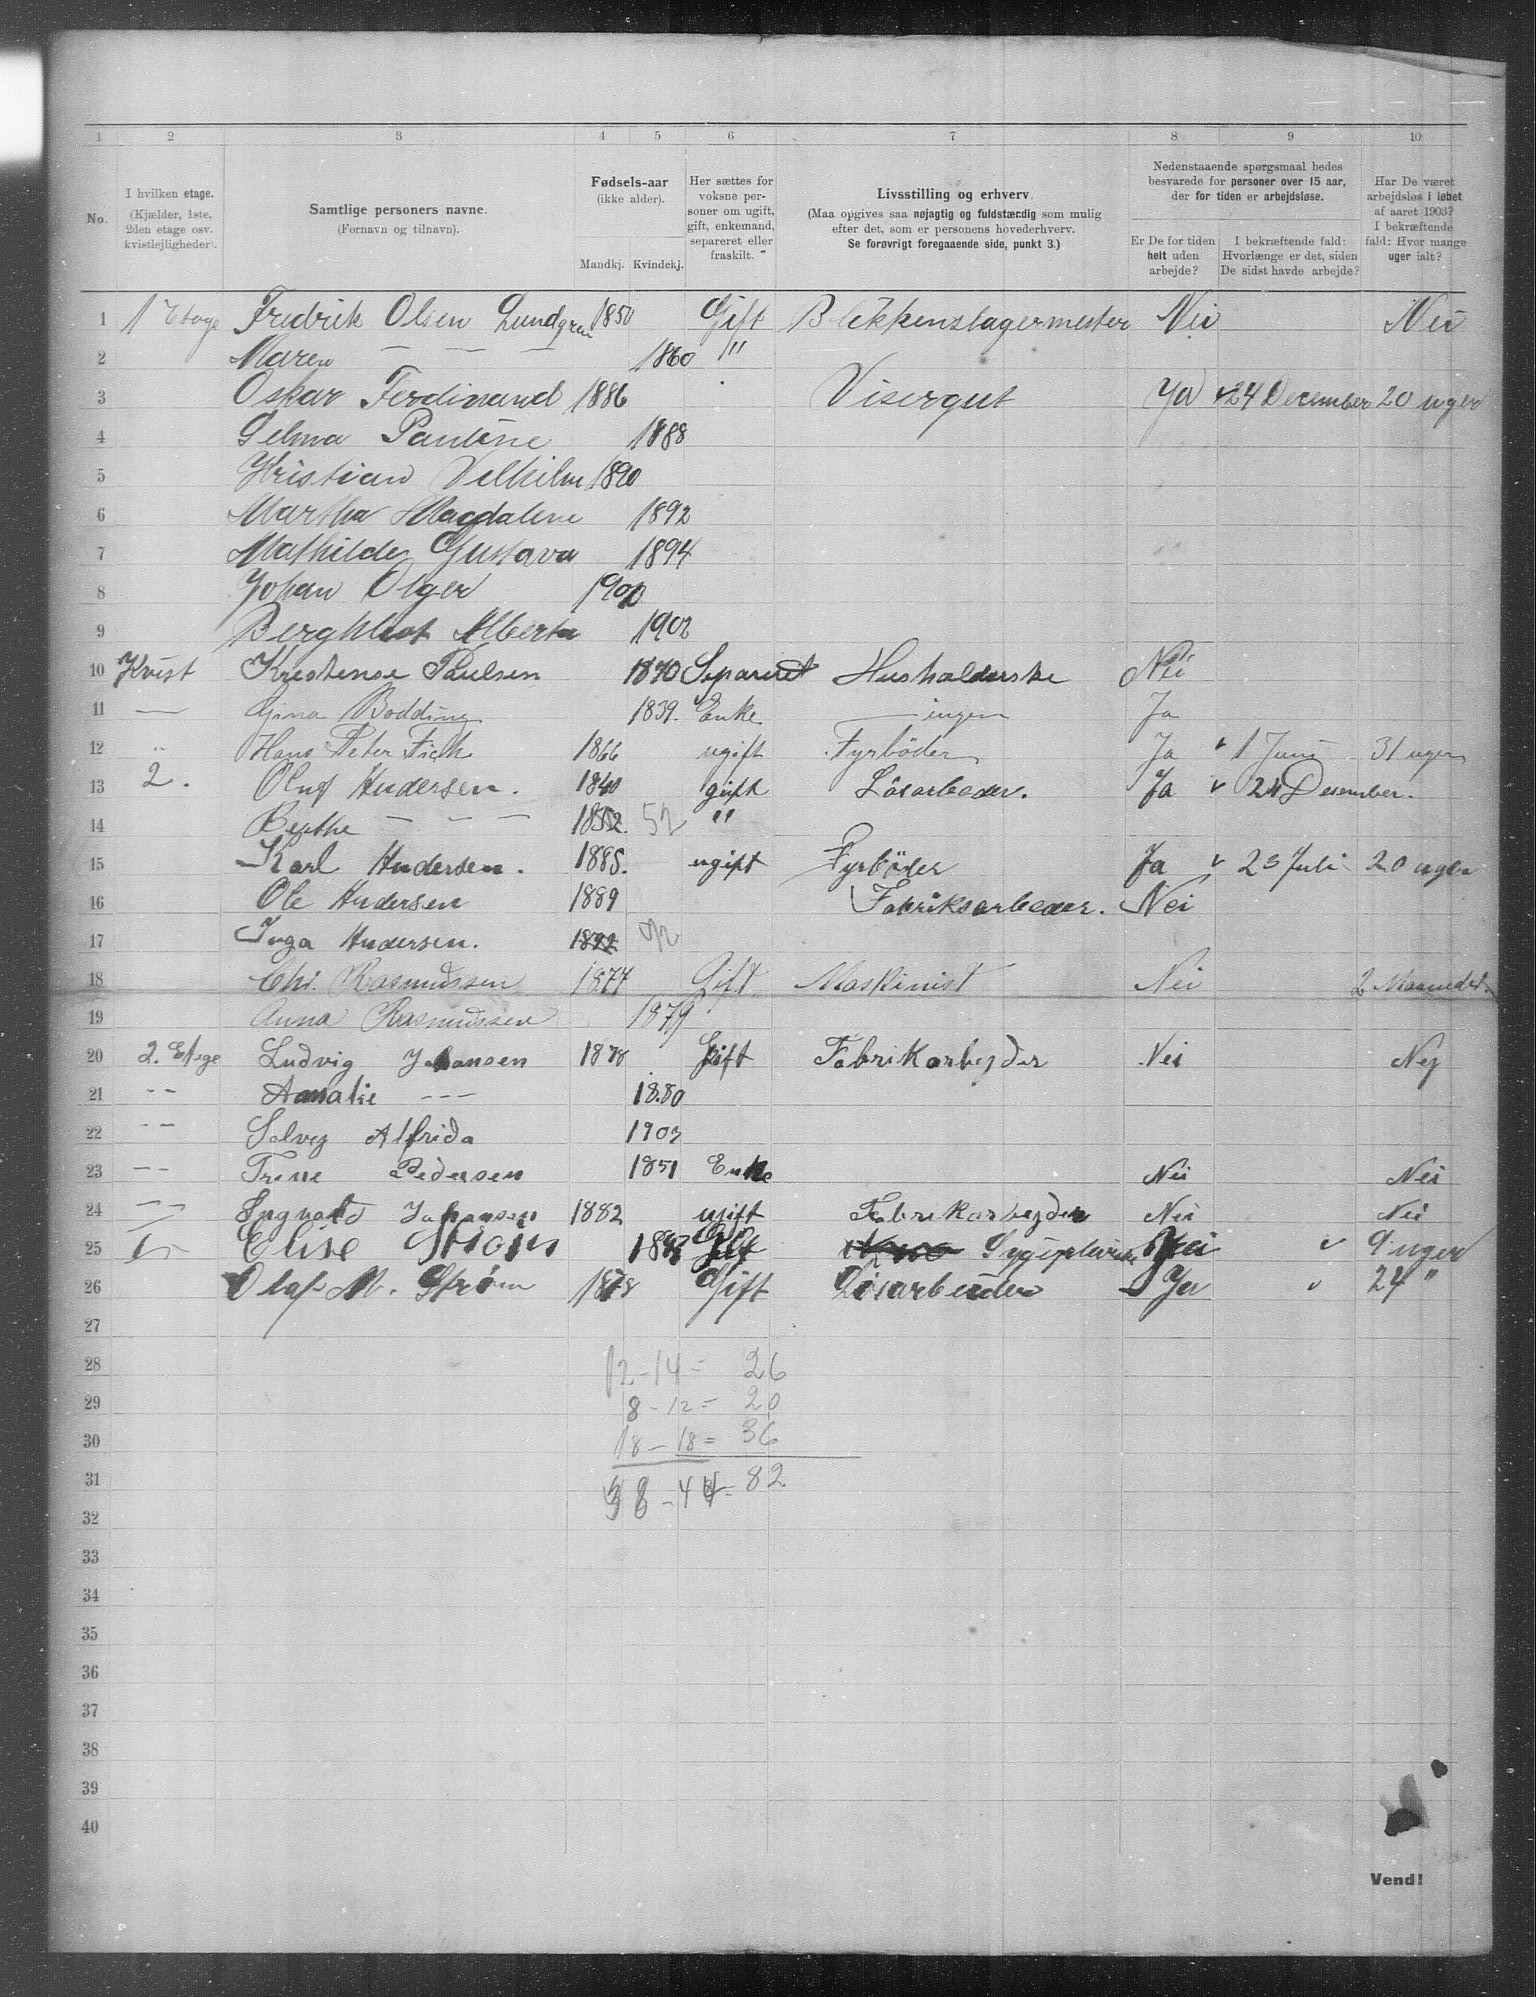 1 2 3 4 5 6 7 8 9 10
No.
I hvilken etage.
(Kjælder, 1ste,
2den etage osv.
kvistlejligheder).
Samtlige personers navne.
(Fornavn og tilnavn).
Fødsels-aar
(ikke alder).
Mandkj. Kvindekj.
Her sættes for
voksne per-
soner om ugift,
gift, enkemand,
separeret eller
fraskilt.
Livsstilling og erhverv.
(Maa opgives saa nøjagtig og fuldstærdig som mulig
efter det, som er personens hovederhverv.
Se forøvrigt foregaaende side, punkt 3.)
Nedenstaaende spørgsmaal bedes
besvarede for personer over 15 aar,
der for tiden er arbejdsløse.
Er De for tiden
helt uden
arbejde?
I bekræftende fald:
Hvorlænge er det, siden
De sidst havde arbejde?
Har De været
arbejdsløs i løbet
af aaret 1903?
I bekræftende
fald: Hvor mange
uger ialt?
1 1 Etage Fredrik Olsen Lundgren 1850 Gift Blikkenslagermester Nei Nei
2 Maren — — — 1860 "
3 Oskar Ferdinand 1886 Visergut Ja 24 December 20 uger
4 Selma Pauline 1888
5 Kristian Vilhilm 1890
6 Martha Magdalene 1892
7 Mathilde Gustava 1894
8 Johan Olger 1900
9 Alberta 1902
10 Kvist Kristense Paulsen 1870 Separeret Husholderske Nei
11 — Gina Bodding 1839. Enke — ingen Ja
12 " Hans Peter 1866 ugift Fyrböder Ja 1 Juni 31 uger
13 2. Oluf Andersen. 1840 gift Lösarbeder. Ja 24 Desember.
14 Berthe — — — 1852. 52 "
15 Karl Andersen. 1885. ugift Fyrböder Ja 23 Juli 20 uger
16 Ole Andersen 1889 Fabriksarbeder. Nei
17 Inga Andersen. 1892 92
18 Chr. Rasmussen 1877 Gift Maskinist Nei 2 Maaneder.
19 Anna Rasmussen 1879
20 2. Etage Ludvig Johansen 1878 Gift Fabrikarbejder Nei Nej
21 -- Amalie --- 1880
22 -- Solvej Alfrida 1903
23 -- Trine Pedersen 1851 Enke Nei Nei
24 -- Ingvald Johansen 1882 ugift Fabrikarbejder Nei Nei
25 Elise Strøm Gift Nei 9 uger
26 Olaf M. Strøm 1878 Gift Løsarbeider Ja 24 "
27
28 12 - 14 = 26
29 8 - 12 = 20
30 18 - 18 = 36
31 38 - 44 = 82
32
33
34
35
36
37
38
39
40
Vend!